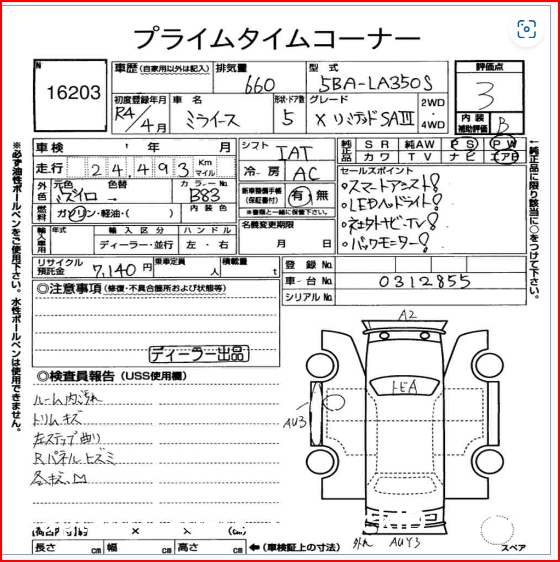 プライムタイムコーナー
No 16203
車歴 (自家用以外は記入)
排気量 660
型式 5BA-LA350S
評価点 3
初度登録年月 R4/4月
車名 ミライース
形状・ドア数 5
グレード X リミテッド SAⅢ
2WD・4WD
内装補助評価 B
車検 年 月
シフト IAT
純正品 SR 純AW PS PW
カワ TV ナビ エアB
走行 24,493 Km マイル
冷房 AC
セールスポイント
・スマートアシスト!
・LEDヘッドライト!
・社外ナビ・TV!
・バックモニター!
外色 元色 色替 カラーNo. B83
新車整備手帳(保証書付) 有・無
※書類と一緒に保管下さい。
燃料 ガソリン・軽油・( ) 内装色
名義変更期限
月 日
輸入車用 年式 輸入区分 ハンドル
ディーラー・並行 左・右
リサイクル預託金 7,140円
乗車定員 人
積載量 t
登録No.
車台No. 0312855
シリアルNo.
◎注意事項 (修復・不具合箇所および状態等)
ディーラー出品
◎検査員報告 (USS使用欄)
ルーム内汚れ
トリムキズ
左ステップ曲り
Rパネルヒズミ
A2
トビA
AU3
外れ AUY3
スペア
長さ cm 幅 cm 高さ cm ←(車検証上の寸法)
※必ず油性ボールペンをご使用下さい。水性ボールペンは使用できません。
←純正品に限り該当に○をつけて下さい。